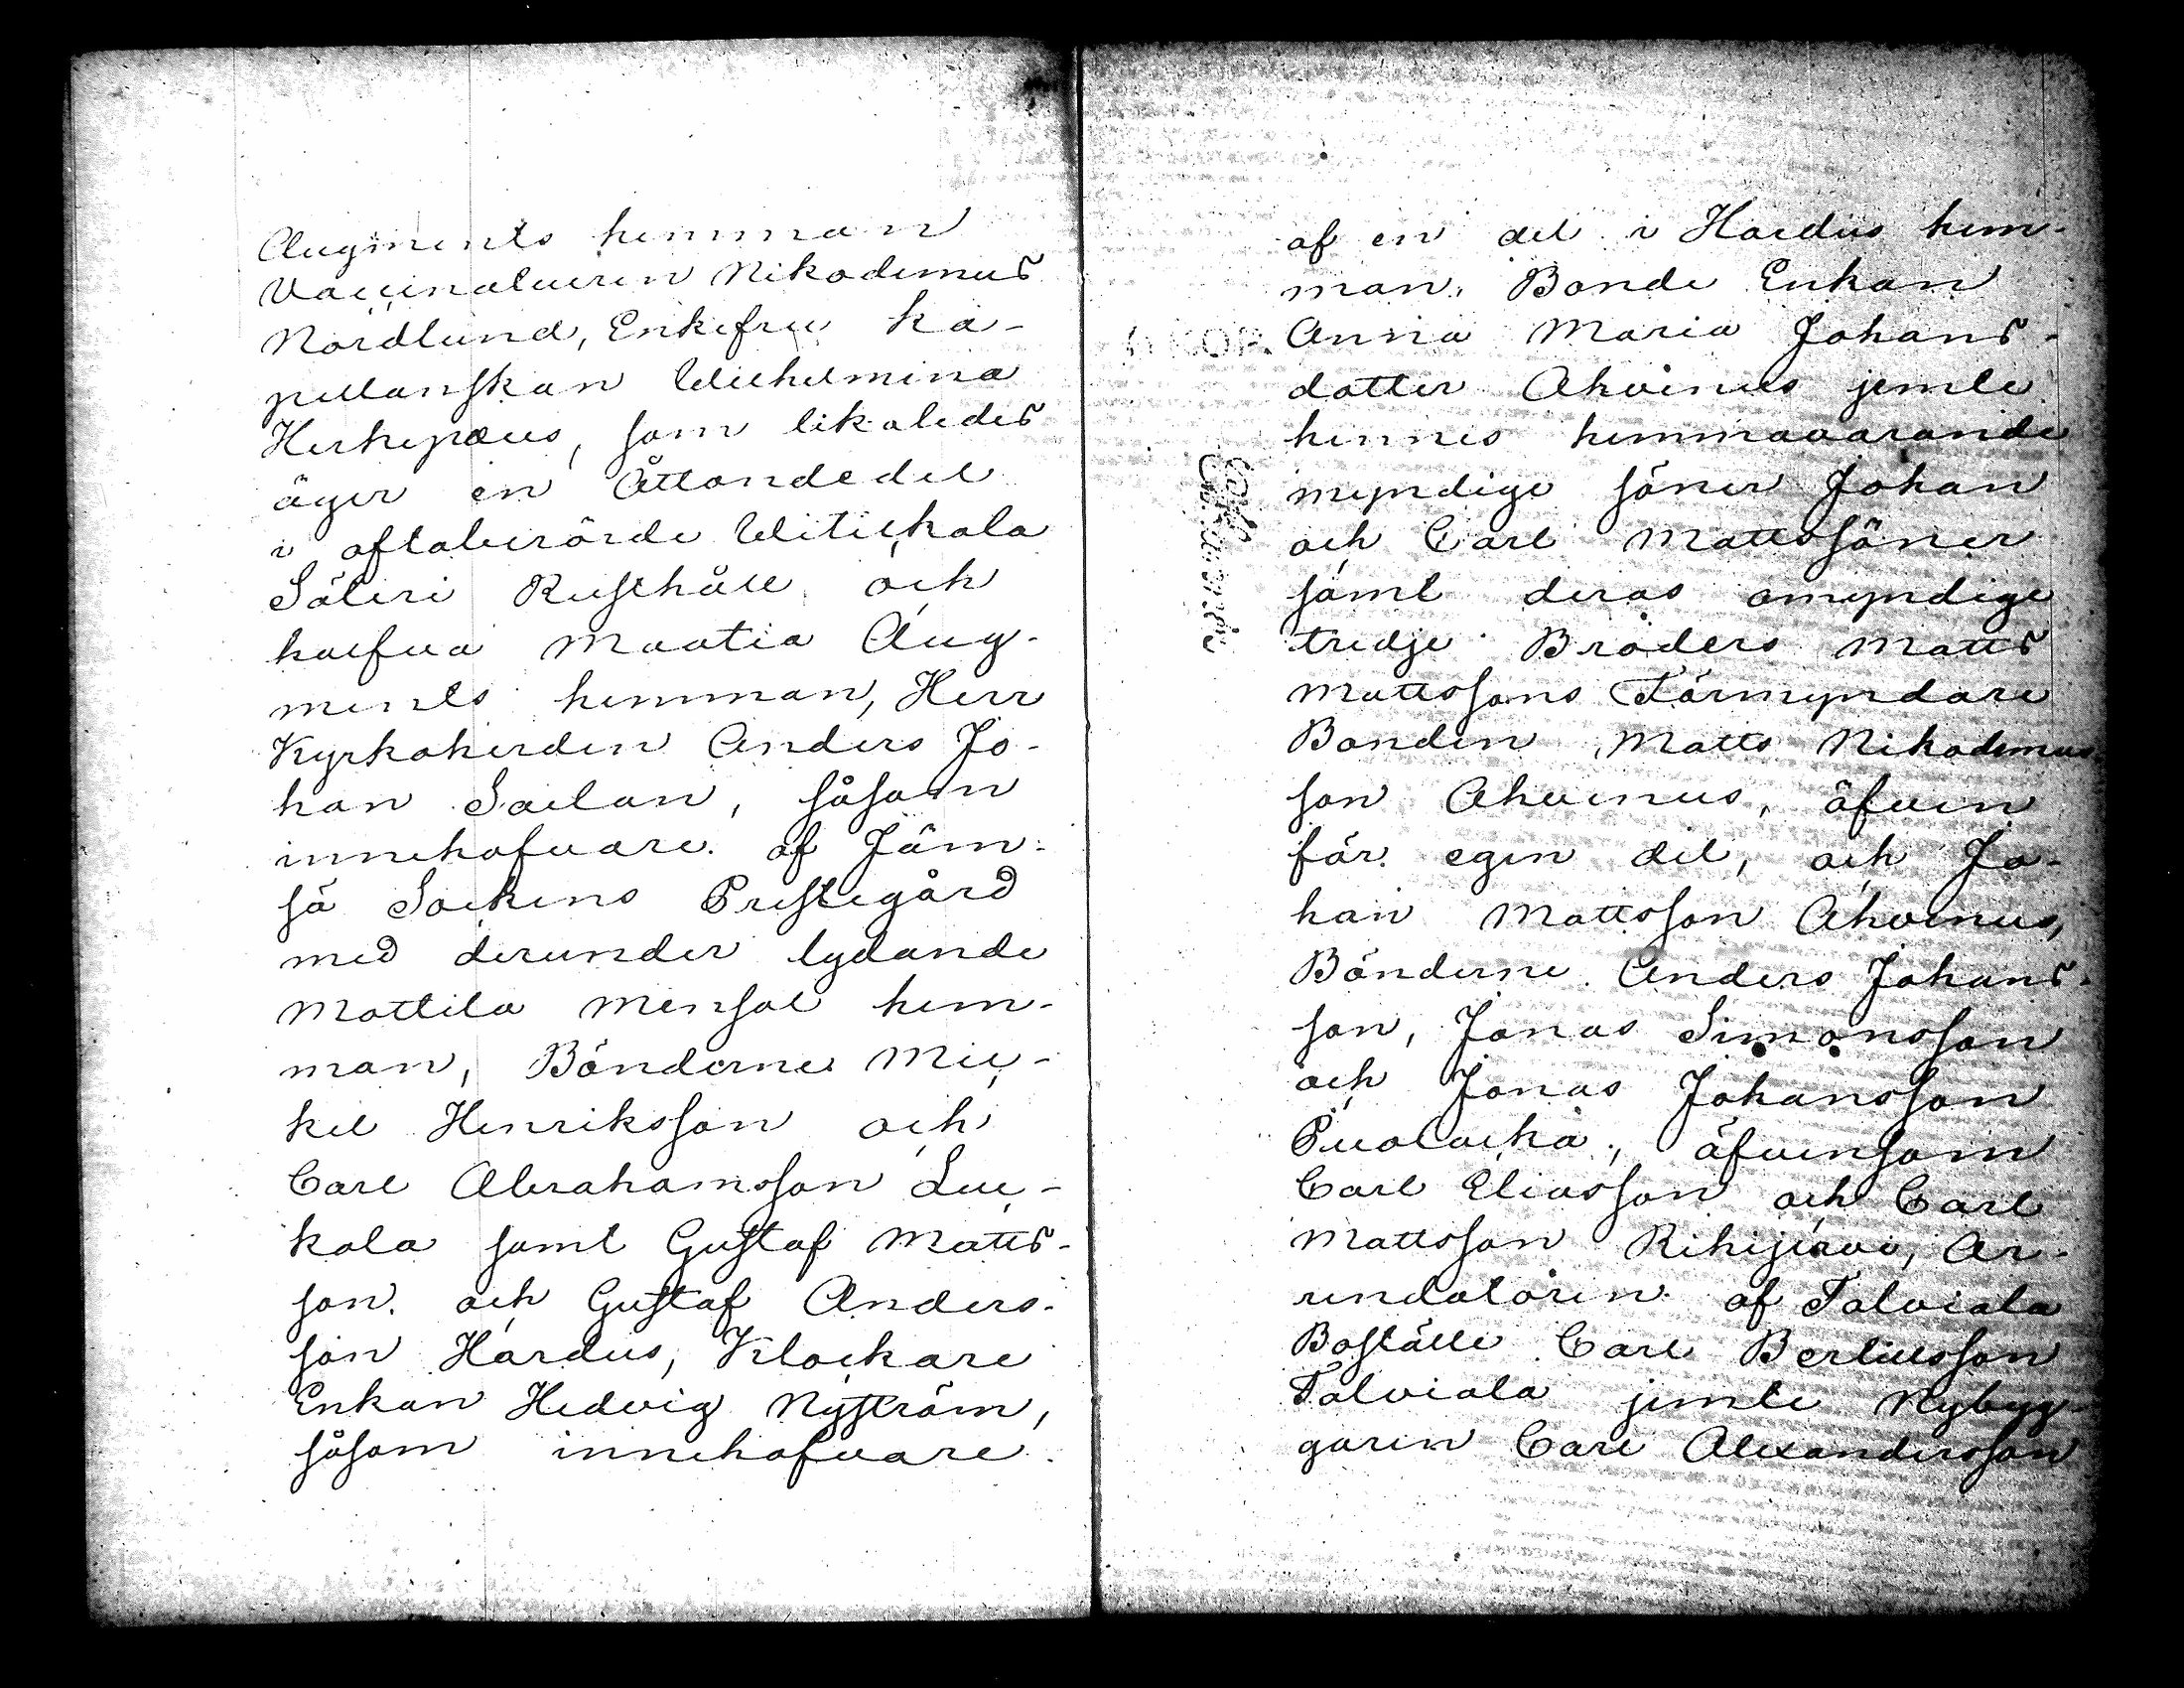 Augments hemman
Vaccinateuren Nikodemus
Nordlund, Enkefru Ka-
pellanskan Wilhelmina
Herkepæus, som likaledes
äger en Åttondedel
i oftaberörde Witickala
Säteri Rusthåll och
halfva Maatia Aug-
ments hemman, Herr
Kyrkoherden Anders Jo-
han Sadan, såsom
innehafvare af Jäm-
sä Sockens Prestegård
med derunder lydande
Mattila Mensal hem-
man, Bönderne Mic-
kel Henriksson och
Carl Abrahamsson Luc-
kola samt Gustaf Matts-
son och Gustaf Anders-
son Hardus, Klockare
Enkan Hedvig Nyström,
såsom innehafvare
af en del i Hardus hem-
man, Bonde Enkan
Anna Maria Johans-
dotter Ahvenus jemte
hennes hemmavarande
myndige söner Johan
och Carl Mattssöner
samt deras omyndige
tredje Broders Matts
Mattssons Förmyndare
Bonden Matts Nikodemus-
son Ahvenus, äfven
för egen del, och Jo-
han Mattsson Ahvenus,
Bönderne Anders Johans-
son, Jonas Simonsson
och Jonas Johansson
Puolacka, äfvensom
Carl Eliasson och Carl
Mattsson Rihijärvi, Ar-
rendatoren af Talviala
Boställe Carl Bertilsson
Talviala jemte Nybyg-
garen Carl Alexandersson